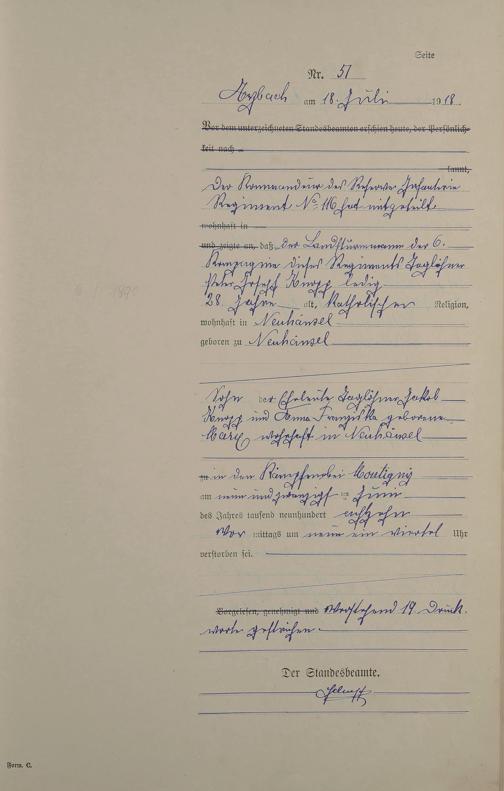 Seite
Nr. 51
Arzbach am 18. Juli 1918
Vor dem unterzeichneten Standesbeamten erschien heute, der Persönlich-
keit nach
kannt,
Der Kommandeur des Reserve Infanterie
Regiment No 116 hat mitgeteilt
wohnhaft in
und zeigte an, daß der Landsturmmann der 6.
Kompagnie dieses Regiments Taglöhner
Peter Joseph Knopp ledig
28 Jahre alt, katholischer Religion,
wohnhaft in Neuhäusel
geboren zu Neuhäusel
Sohn der Eheleute Taglöhner Jakob
Knopp und Anna Franziska geborene
Marx wohnhaft in Neuhäusel
zu in den Kämpfen bei Montigny
am neun und zwanzigsten Juni
des Jahres tausend neunhundert achtzehn
Vor mittags um neun ein viertel Uhr
verstorben sei.
Vorgelesen, genehmigt und Vorstehend 19 Druck-
worte gestrichen.
Der Standesbeamte.
Form. C.